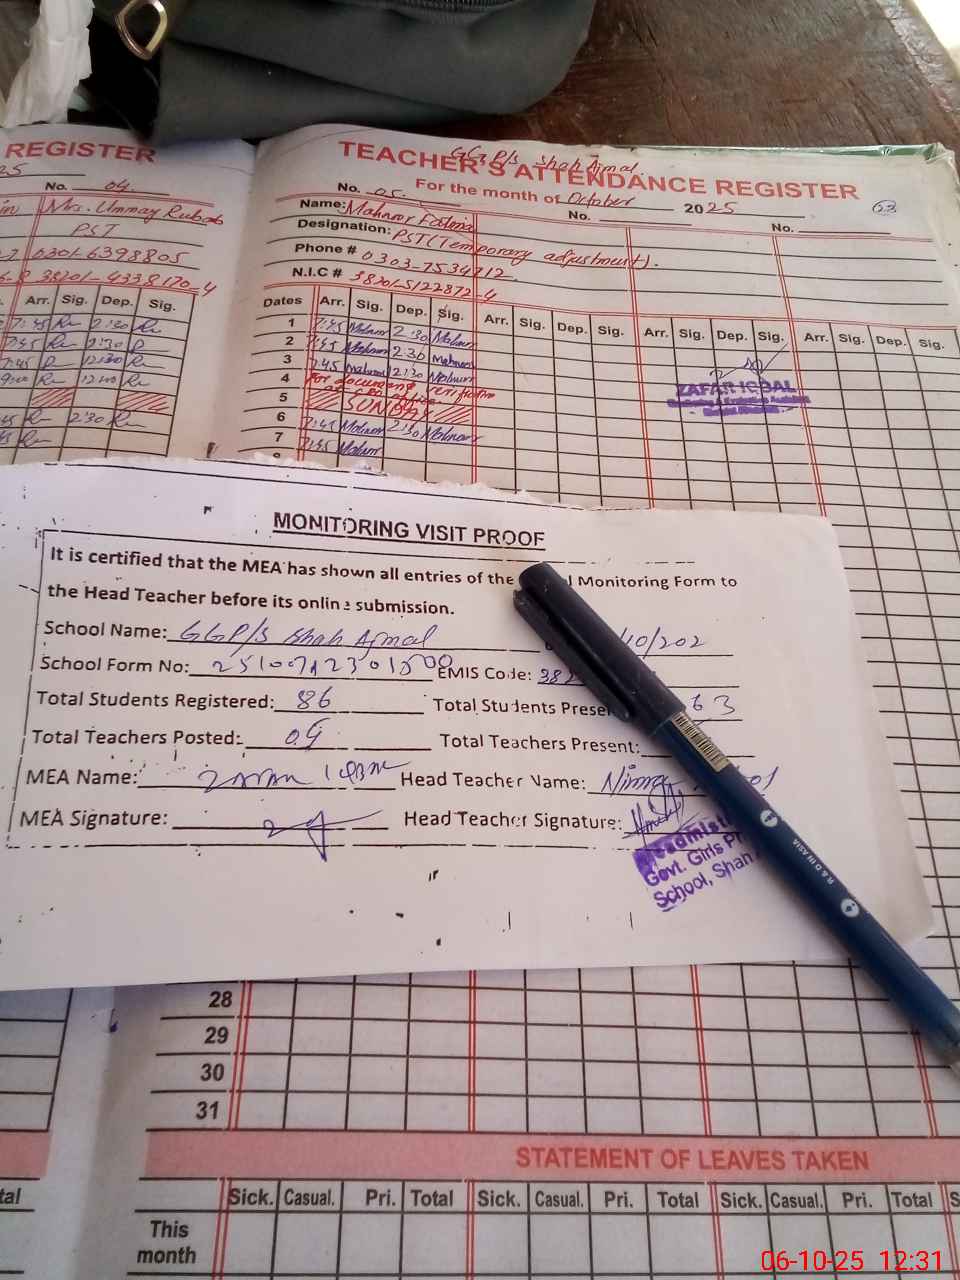 REGISTER
25
No. 04
Mrs. Ummay Rubab
PST
0301-6398805
38201-4338170-4
Arr. Sig. Dep. Sig.
7:45 2:30
7:45 2:30
7:45 12:30
9:00 12:00
2:30
GGP/S Shah Ajmal
TEACHER'S ATTENDANCE REGISTER
For the month of October 2025
No. 05. No. No.
Name: Mahnoor Fatima
Designation: PST (Temporary adjustment).
Phone # 0303-7534712
N.I.C # 38201-5122872-4
Dates Arr. Sig. Dep. Sig. Arr. Sig. Dep. Sig. Arr. Sig. Dep. Sig. Arr. Sig. Dep. Sig.
1 7:45 Mahnoor 2:30 Mahnoor
2 7:45 Mahnoor 2:30 Mahnoor
3 7:45 Mahnoor 12:30 Mahnoor
4 For document verification
5 SUNDAY
6 7:45 Mahnoor 2:30 Mahnoor
7 7:45 Mahnoor
ZAFAR IQBAL
MONITORING VISIT PROOF
It is certified that the MEA has shown all entries of the Monitoring Form to
the Head Teacher before its online submission.
School Name: GGP/S Shah Ajmal /10/202
School Form No: EMIS Code: 382
Total Students Registered: 86 Total Students Present 63
Total Teachers Posted: 04 Total Teachers Present:
MEA Name: Zafar Iqbal Head Teacher Name:
MEA Signature: Head Teacher Signature:
Headmist
Govt. Girls Pr
School, Shah A
R & D IN ASIA
28
29
30
31
STATEMENT OF LEAVES TAKEN
tal Sick. Casual. Pri. Total Sick. Casual. Pri. Total Sick. Casual. Pri. Total S
This
month
06-10-25 12:31